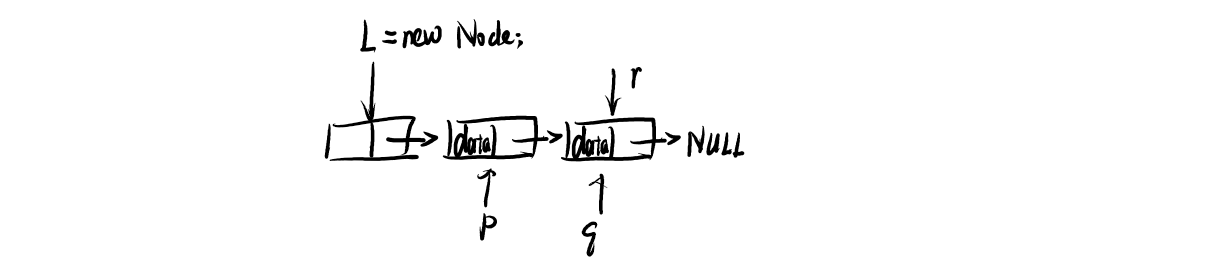 L = new Node;
r
data data NULL
p q